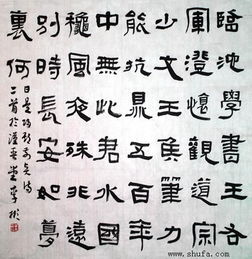 臨池學書王右
軍澄懷觀道宗
少文王侯筆力
能扛鼎五百年
中無此君水國
穐風夜殊非遠
別時長安如夢
裏何
日是歸期
二首於堂李
www.shufa.com